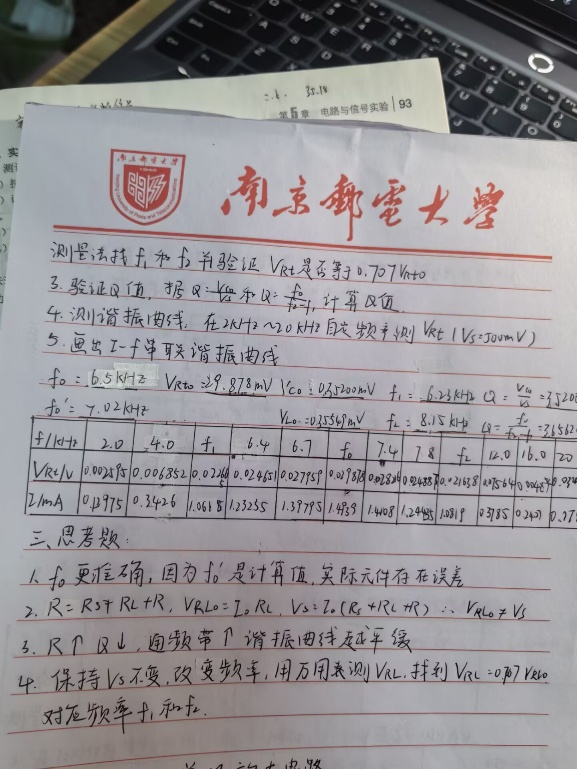 第5章 电路与信号实验 | 93
南京郵電大學
测量法找 f₁ 和 f₂ 并验证 VRt是否等于0.707VRto
3. 验证Q值, 据 Q=Vco/Vs 和 Q=f₀/(f₂-f₁), 计算Q值.
4. 测谐振曲线, 在2kHz~20kHz自定频率测 VRt (Vs=500mV)
5. 画出I-f串联谐振曲线
f₀ = 6.5kHz VRto=29.878mV Vco=0.35200mV f₁=6.23kHz Q=Vco/Vs=
f₀'=7.02kHz VLo=0.35549mV f₂=8.15kHz Q=f₀/(f₂-f₁)=
f/kHz 2.0 4.0 f₁ 6.4 6.7 f₀ 7.4 7.8 f₂ 12.0 16.0 20
VRt/v 0.002595 0.006852 0.024651 0.027959 0.021638
I/mA 0.12975 0.3426 1.23235 1.39795 1.4939 1.4108 1.0819 0.3785
三、思考题:
1. f₀ 更准确, 因为f₀'是计算值, 实际元件存在误差
2. R=Rs+RL+R, VRLo=I₀RL, Vs=I₀(Rs+RL+R) ∴ VRLo≠Vs
3. R↑ Q↓, 通频带↑ 谐振曲线越平缓
4. 保持Vs不变, 改变频率, 用万用表测VRL, 找到VRL=0.707VRLo
对应频率f₁和f₂.